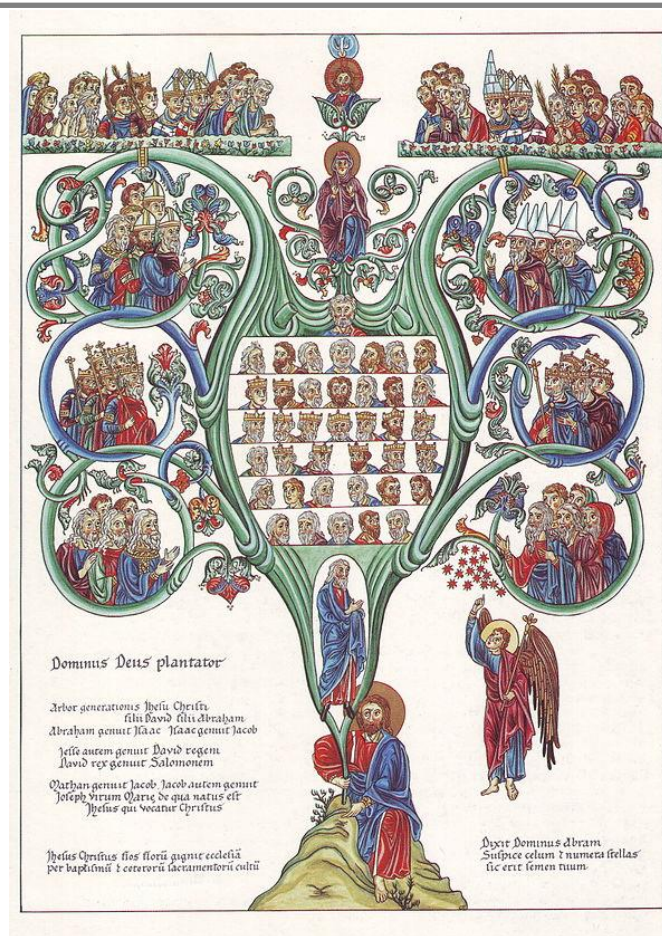 Dominus Deus plantator
Arbor generationis Jhesu Christi
filii David filii Abraham
Abraham genuit Isaac Isaac genuit Jacob
Jesse autem genuit David regem
David rex genuit Salomonem
Mathan genuit Jacob. Jacob autem genuit
Joseph virum Marie de qua natus est
Jhesus qui vocatur Christus
Jhesus Christus flos florū gignit ecclesiā
per baptismū & ceterorū sacramentorū cultū
Dixit Dominus Abram
Suspice celum & numera stellas
sic erit semen tuum